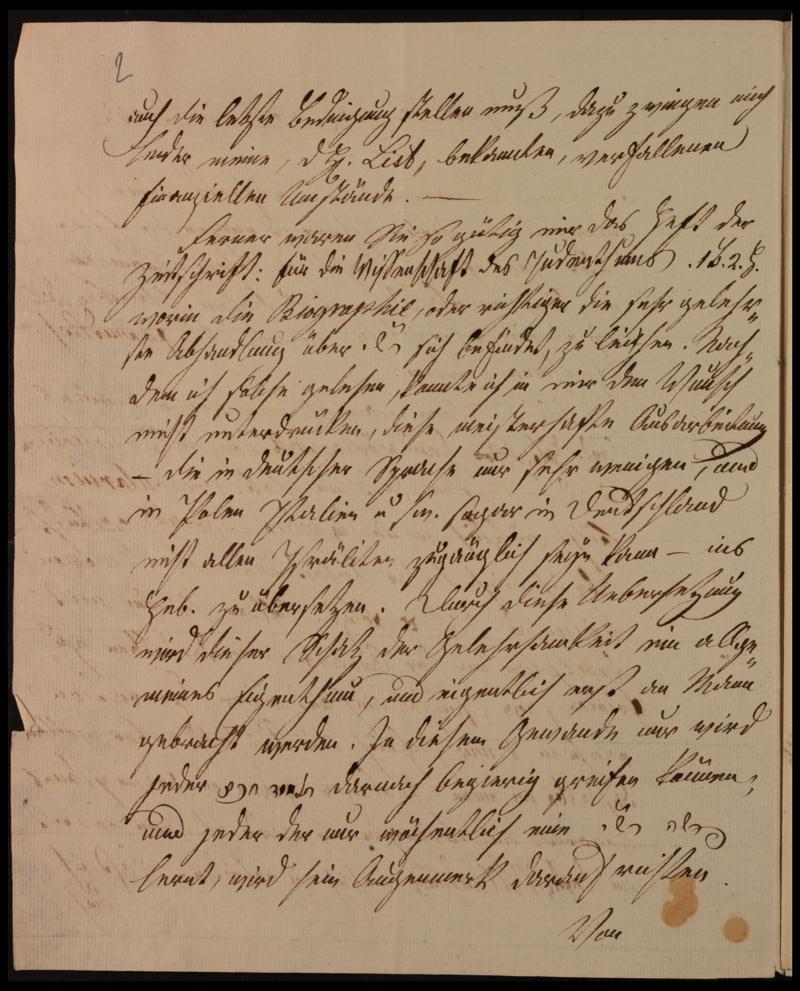 2
auch die letzte Bedingung stellen muß, dazu zwingen mich
leider meine, d H. List, bekannten, verfallenen
finanziellen Umstände. —
Ferner waren Sie so gütig mir das Heft der
Zeitschrift: für die Wissenschaft des Judenthums. 1 B. 2. H.
worin die Biographie, oder richtiger die sehr gelehr„
te Abhandlung über רשי sich befindet, zu leihen. Nach„
dem ich solche gelesen, konnte ich in mir den Wunsch
nicht unterdrücken, diese meisterhafte Ausarbeitung
– die in deutscher Sprache nur sehr wenigen, und
in Polen Italien u s.w. sogar in Deutschland
nicht allen Israeliten zugänglich seyn kann – ins
Heb. zu übersetzen. Durch diese Uebersetzung
wird dieser Schatz der Gelehrsamkeit ein allge„
meines Eigenthum, und eigentlich erst an Mann
gebracht werden. In diesem Gewande nur wird
jeder darnach begierig greifen können,
und jeder der nur wöchentlich eine רשי
lernt, wird sein Augenmerk darauf richten.
Von